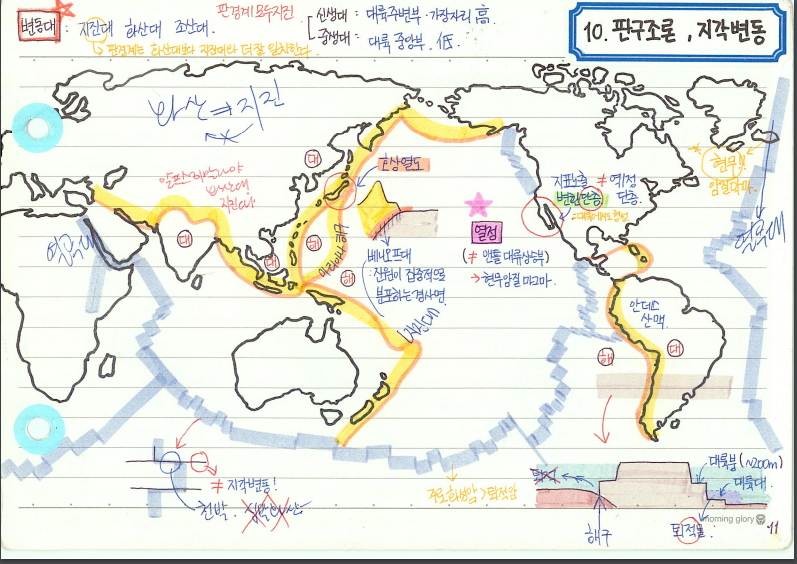 변동대 : 지진대 화산대 조산대.
판경계 모두 지진
신생대 : 대륙주변부·가장자리 高
중생대 : 대륙 중앙부. 低.
10. 판구조론, 지각변동
↳ 판경계는 화산대보다 지진대와 더 잘 일치한다.
화산 ⇒ 지진
알프스히말라야
지진대
대
호상열도
대
대
해
해
마리아나
베니오프대
: 진원이 집중적으로
분포하는 경사면.
열점
(≠ 맨틀 대류상승부)
→ 현무암질 마그마.
지표노출 ≠ 역·정
변환단층 단층.
현무암
열곡대
안데스
산맥
해
대
≠ 지각변동!
천발.
대륙붕 (~200m)
대륙대.
해구
퇴적물.
morning glory
11